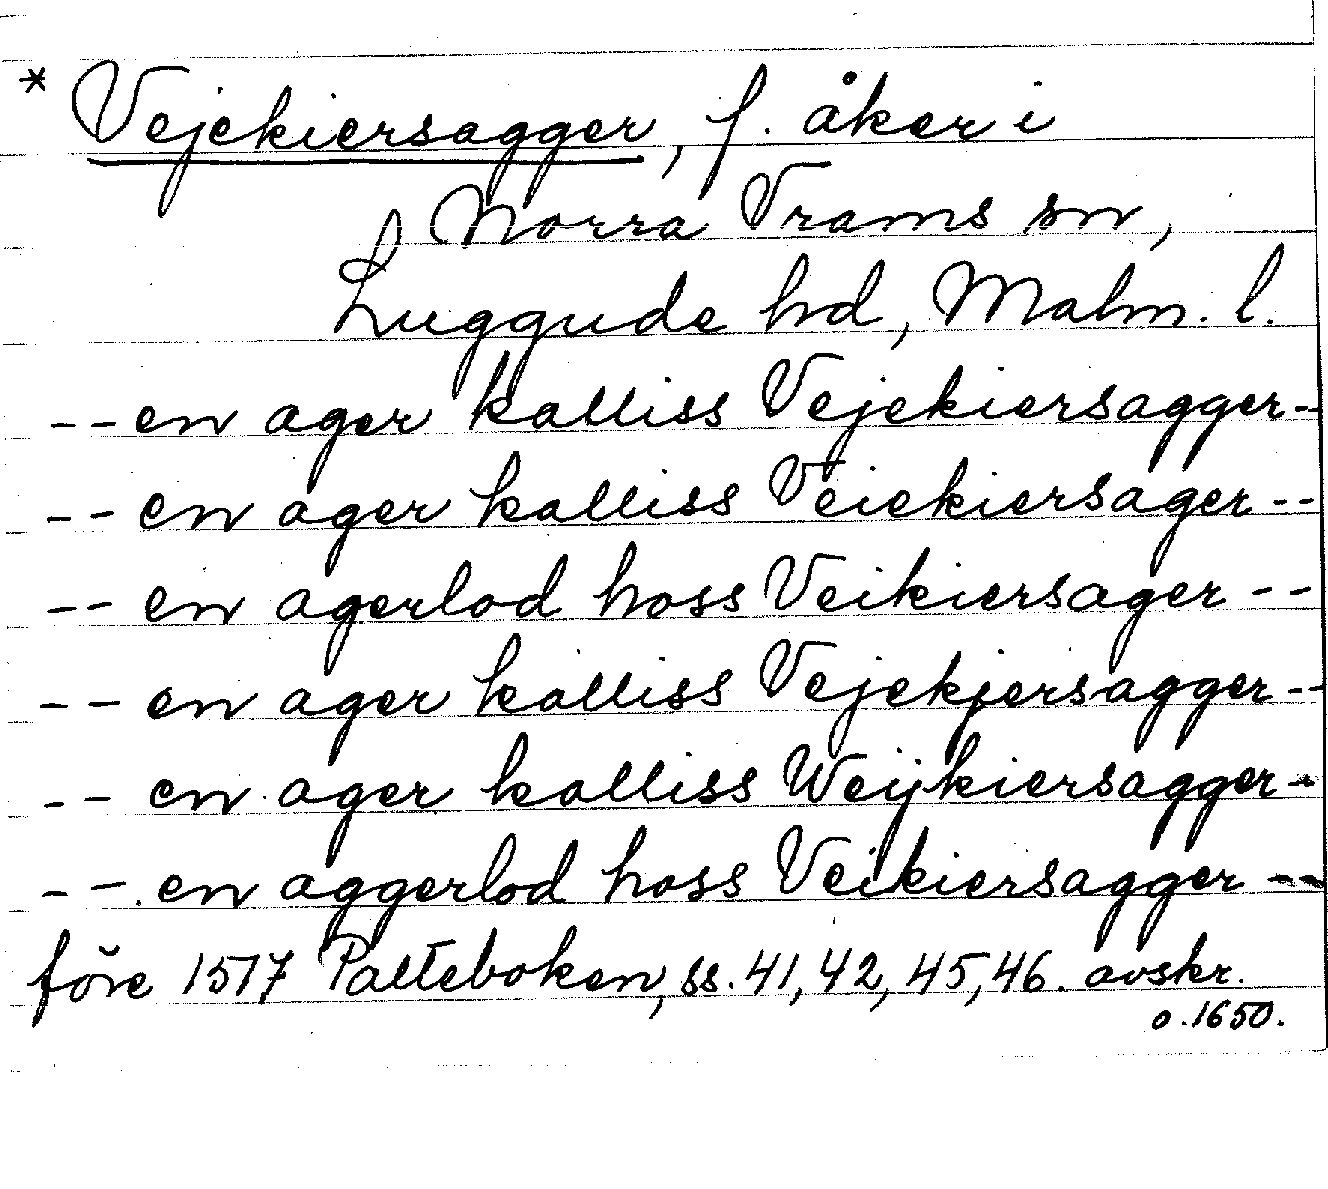 * Vejekiersagger, f. åker i
Norra Vrams sn,
Luggude hd, Malm. l.
-- en ager kalliss Vejekiersagger --
-- en ager kalliss Veiekiersager --
-- en agerlod hoss Veikiersager --
-- en ager kalliss Vejekjersagger --
-- en ager kalliss Weijkiersagger --
-- en aggerlod hoss Veikiersagger --
före 1517 Palteboken, ss. 41, 42, 45, 46. avskr.
o. 1650.